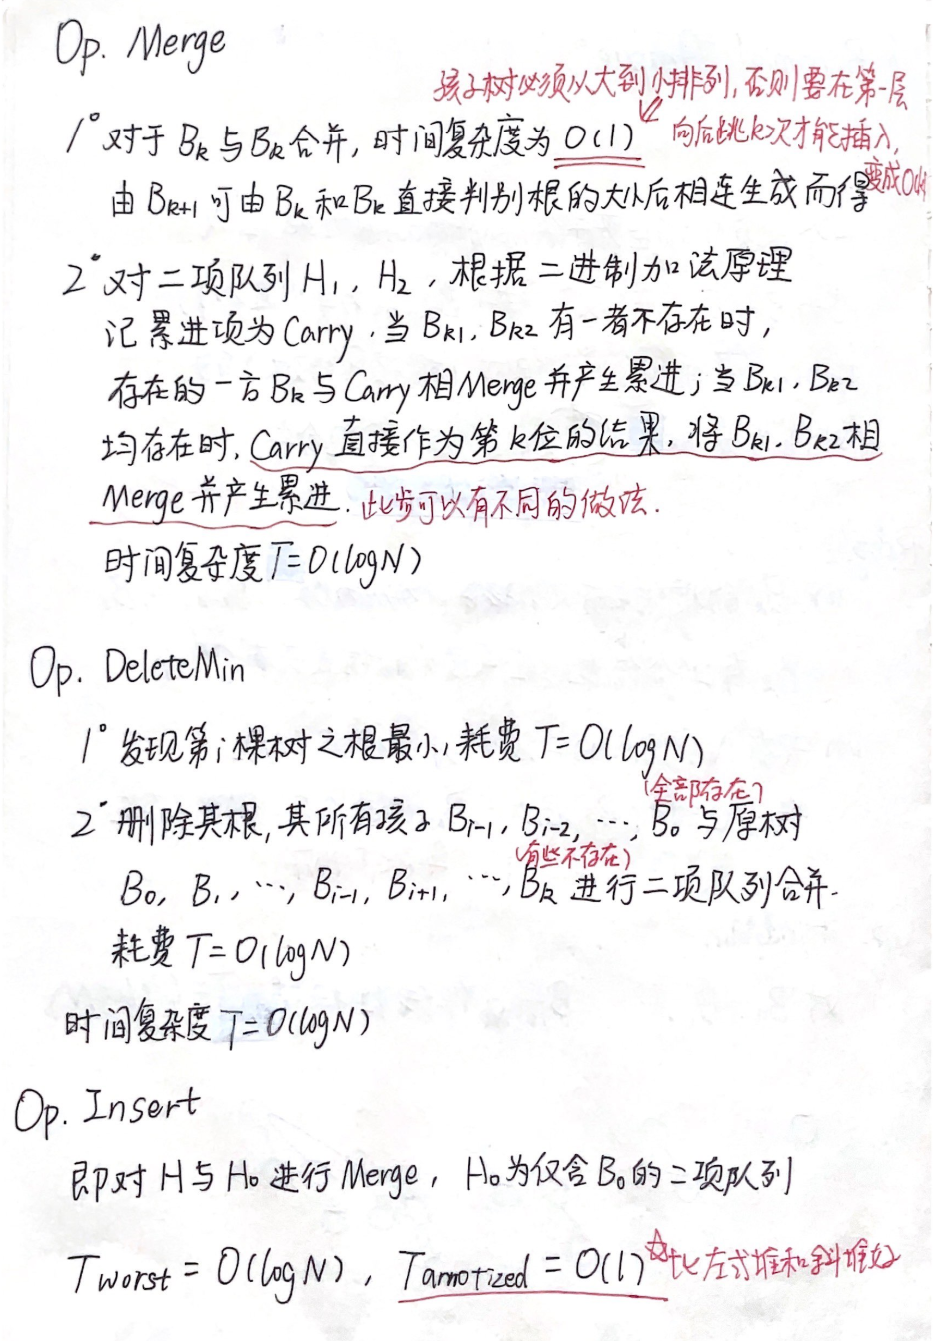 Op. Merge
孩子树必须从大到小排列,否则要在第一层
向后跳k次才能插入,
变成O(k)
1° 对于 Bk 与 Bk 合并,时间复杂度为 O(1)
由 Bk+1 可由 Bk 和 Bk 直接判别根的大小后相连生成而得
2° 对二项队列 H1, H2, 根据二进制加法原理
记累进项为 Carry. 当 Bk1, Bk2 有一者不存在时,
存在的一方 Bk 与 Carry 相 Merge 并产生累进; 当 Bk1, Bk2
均存在时, Carry 直接作为第 k 位的结果, 将 Bk1, Bk2 相
Merge 并产生累进. 此步可以有不同的做法.
时间复杂度 T=O(logN)
Op. DeleteMin
1° 发现第i棵树之根最小, 耗费 T=O(logN)
(全部存在)
2° 删除其根, 其所有孩子 Bi-1, Bi-2, ⋯, B0 与原树
(有些不存在)
B0, B1, ⋯, Bi-1, Bi+1, ⋯, Bk 进行二项队列合并.
耗费 T=O(logN)
时间复杂度 T=O(logN)
Op. Insert
即对 H 与 H0 进行 Merge, H0 为仅含 B0 的二项队列
Tworst = O(logN), Tamotized = O(1) ☆比左式堆和斜堆好